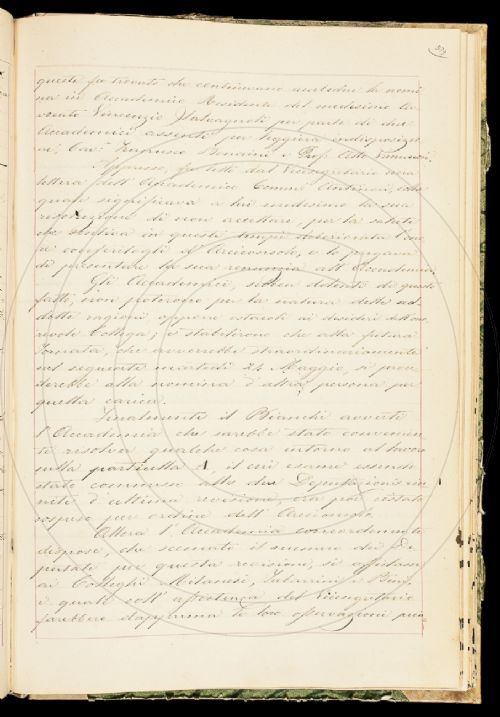 queste fu trovato che contenevano schedule la nomi
na in Accademico Residente del medesimo Av
vocato Vincenzio Salvagnoli per parte di due
Accademici assenti per leggiera indisposizio
ne, Cav. Francesco Bonaini e Prof. Atto Vannucci.
Appresso, fu letta dal Vicesegretario una
lettera dell'Accademico Comm. Antinori, colla
quale significava a lui medesimo la sua
risoluzione di non accettare, per la salute
che sentiva in questi tempi l'on
e conferitogli d'Arciconsolo, e lo pregava
di presentare la sua renunzia all'Accademia.
Gli Accademici, sebben dolenti di questo
fatto, non poterono per la natura delle ad
dotte ragioni, opporre ostacoli ai desiderii dell'ono
revole Collega; e stabilirono che alla futura
Tornata, che avverrebbe straordinariamente
nel seguente mercoledì 24 Maggio, si proce
derebbe alla nomina d'altra persona per
quella carica.
Finalmente il Bianchi avvertì
l'Accademia che sarebbe stato convenien
te risolver qualche cosa intorno al lavoro
sulla particella A, il cui esame essendo
stato commesso alle due Deputazioni riu
nite d'ultima revisione, era poi restato
sospeso per ordine dell'Arciconsolo.
Allora l'Accademia concordemente
dispose, che scemato il numero dei De
putati per questa revisione, si affidasse
ai Colleghi Milanesi, Tabarrini e Bianchi,
i quali coll'assistenza del Vicesegretario
farebbero dapprima le loro osservazioni pri